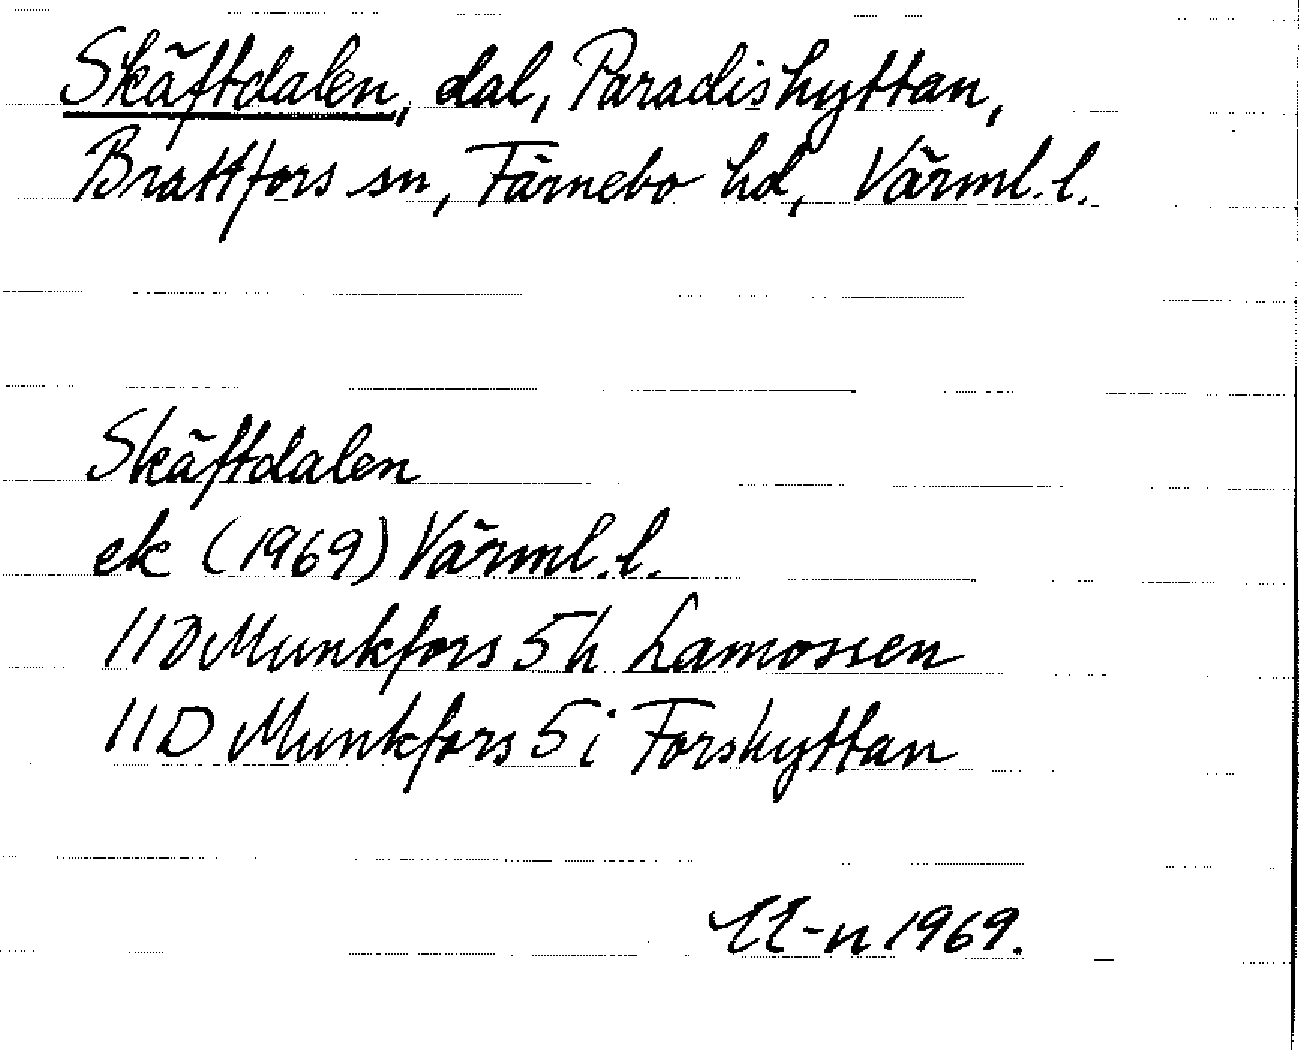 Skäftdalen, dal, Paradishyttan,
Brattfors sn, Färnebo hd, Värml. l.
Skäftdalen
ek (1969) Värml. l.
11D Munkfors 5h Lamossen
11D Munkfors 5i Forshyttan
1969.